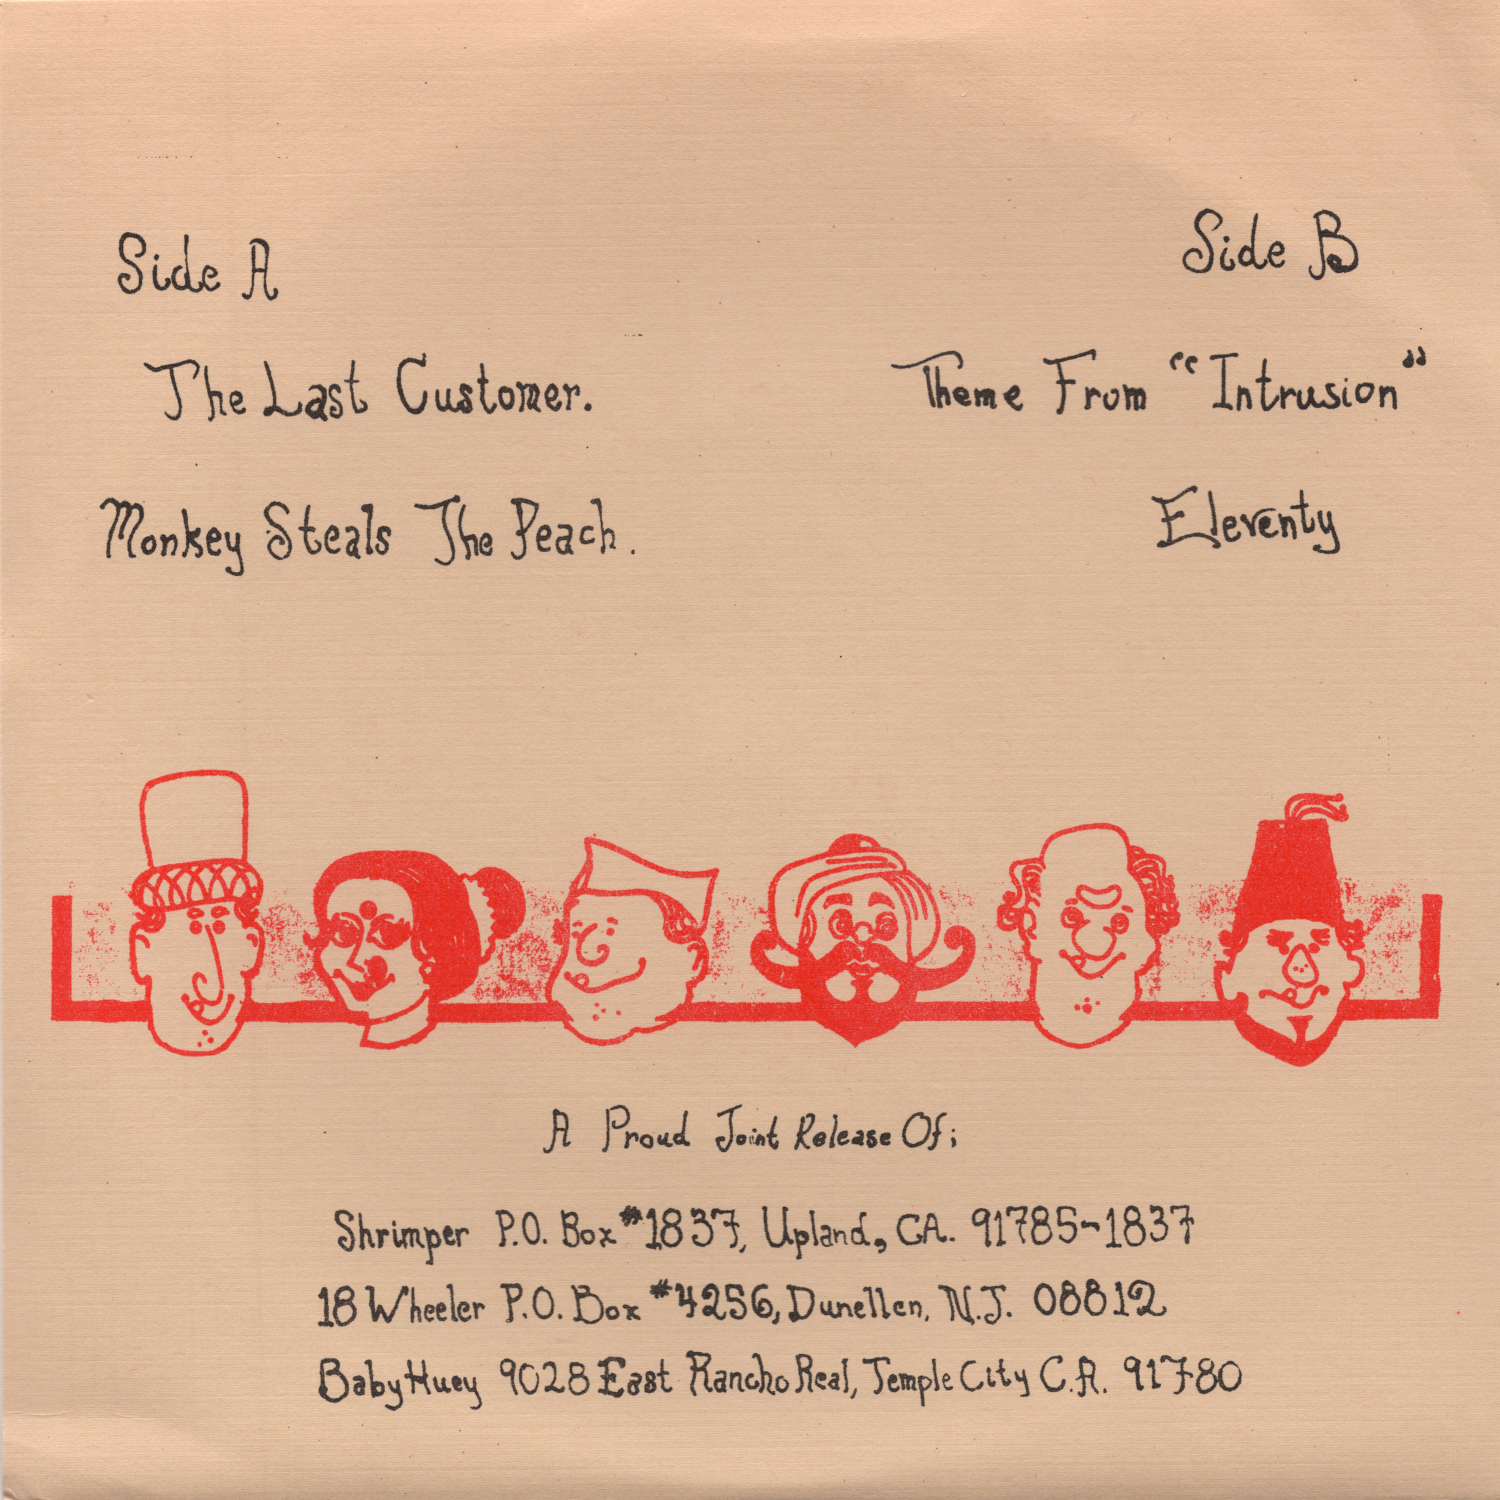 Side A
The Last Customer.
Monkey Steals The Peach.
Side B
Theme From "Intrusion"
Eleventy
A Proud Joint Release Of;
Shrimper P.O. Box #1837, Upland, CA. 91785-1837
18 Wheeler P.O. Box #4256, Dunellen, N.J. 08812
Baby Huey 9028 East Rancho Real, Temple City C.A. 91780